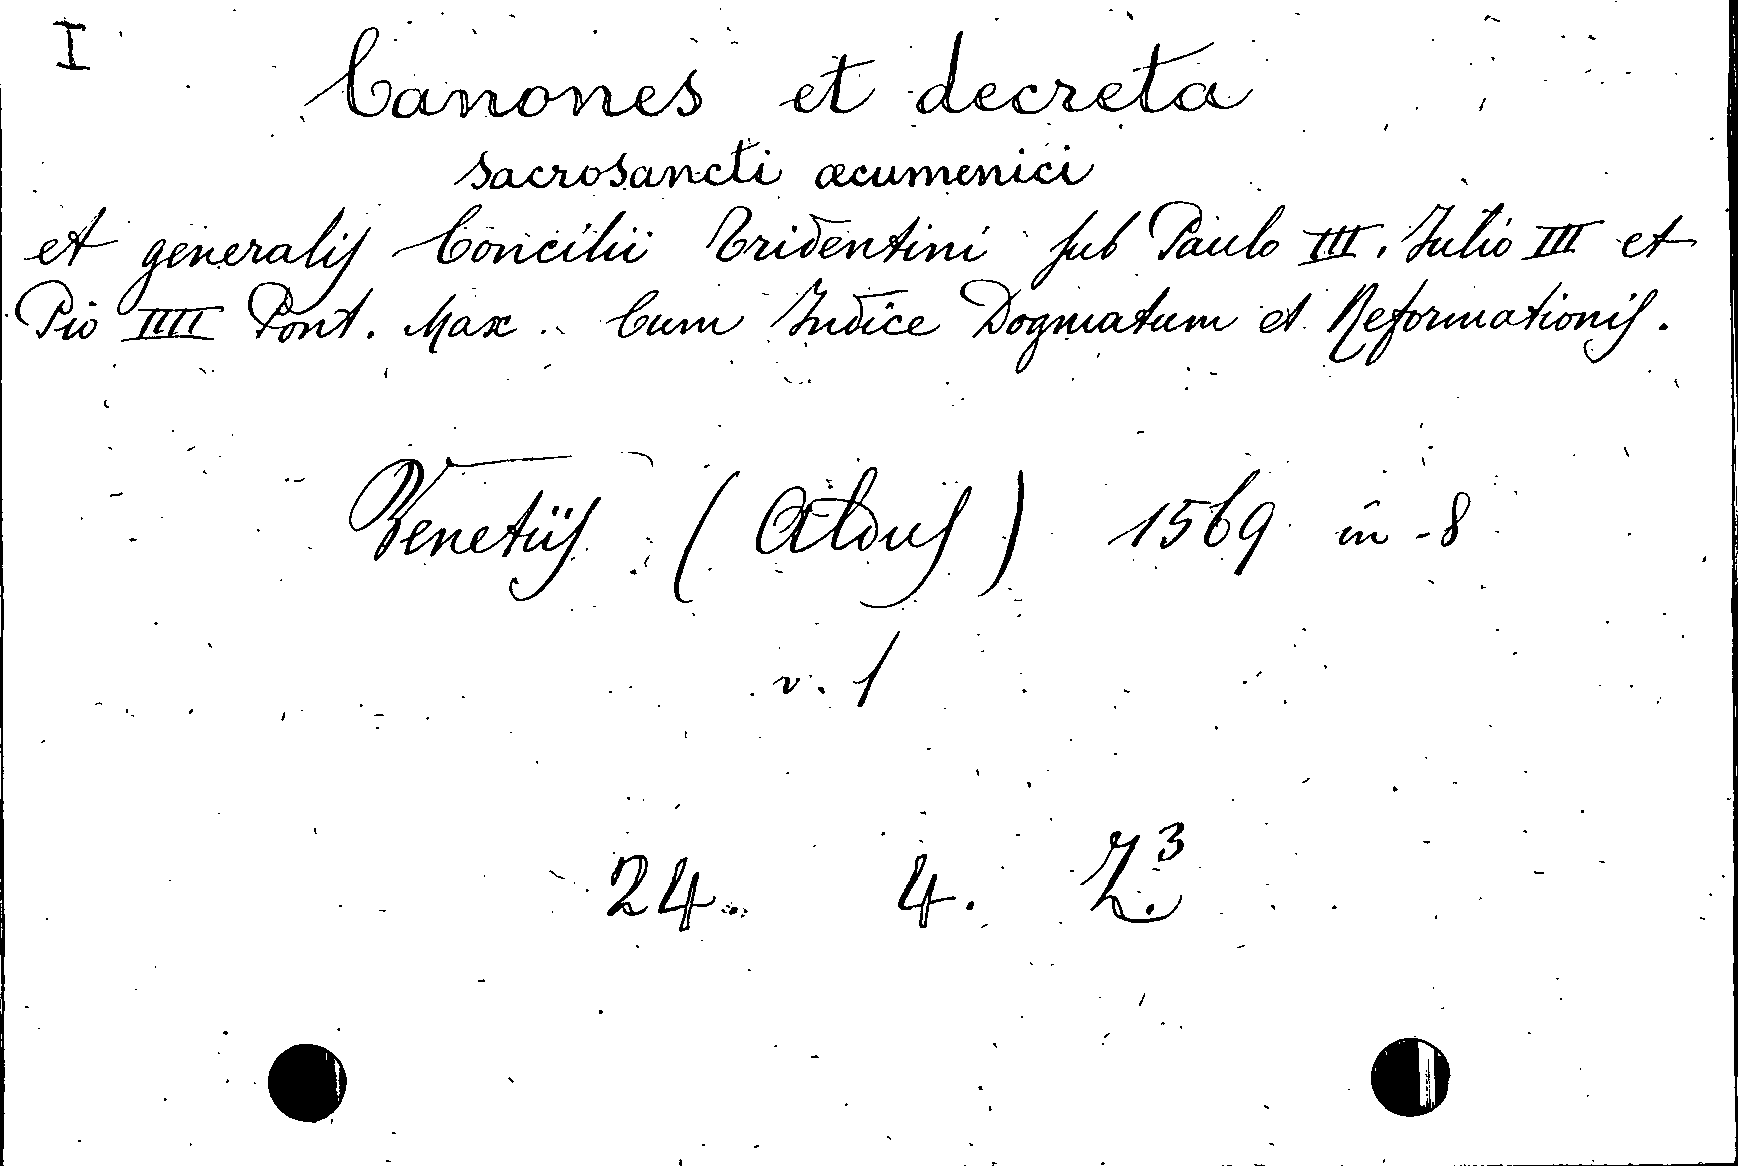 I
Canones et decreta
sacrosancti œcumenici
et generalis Concilii Tridentini sub Paulo III, Julio III et
Pio IIII Pont. Max. Cum Indice Dogmatum et Reformationis.
Venetiis (Aldus) 1569 in-8
v. 1
24. 4. Z.³